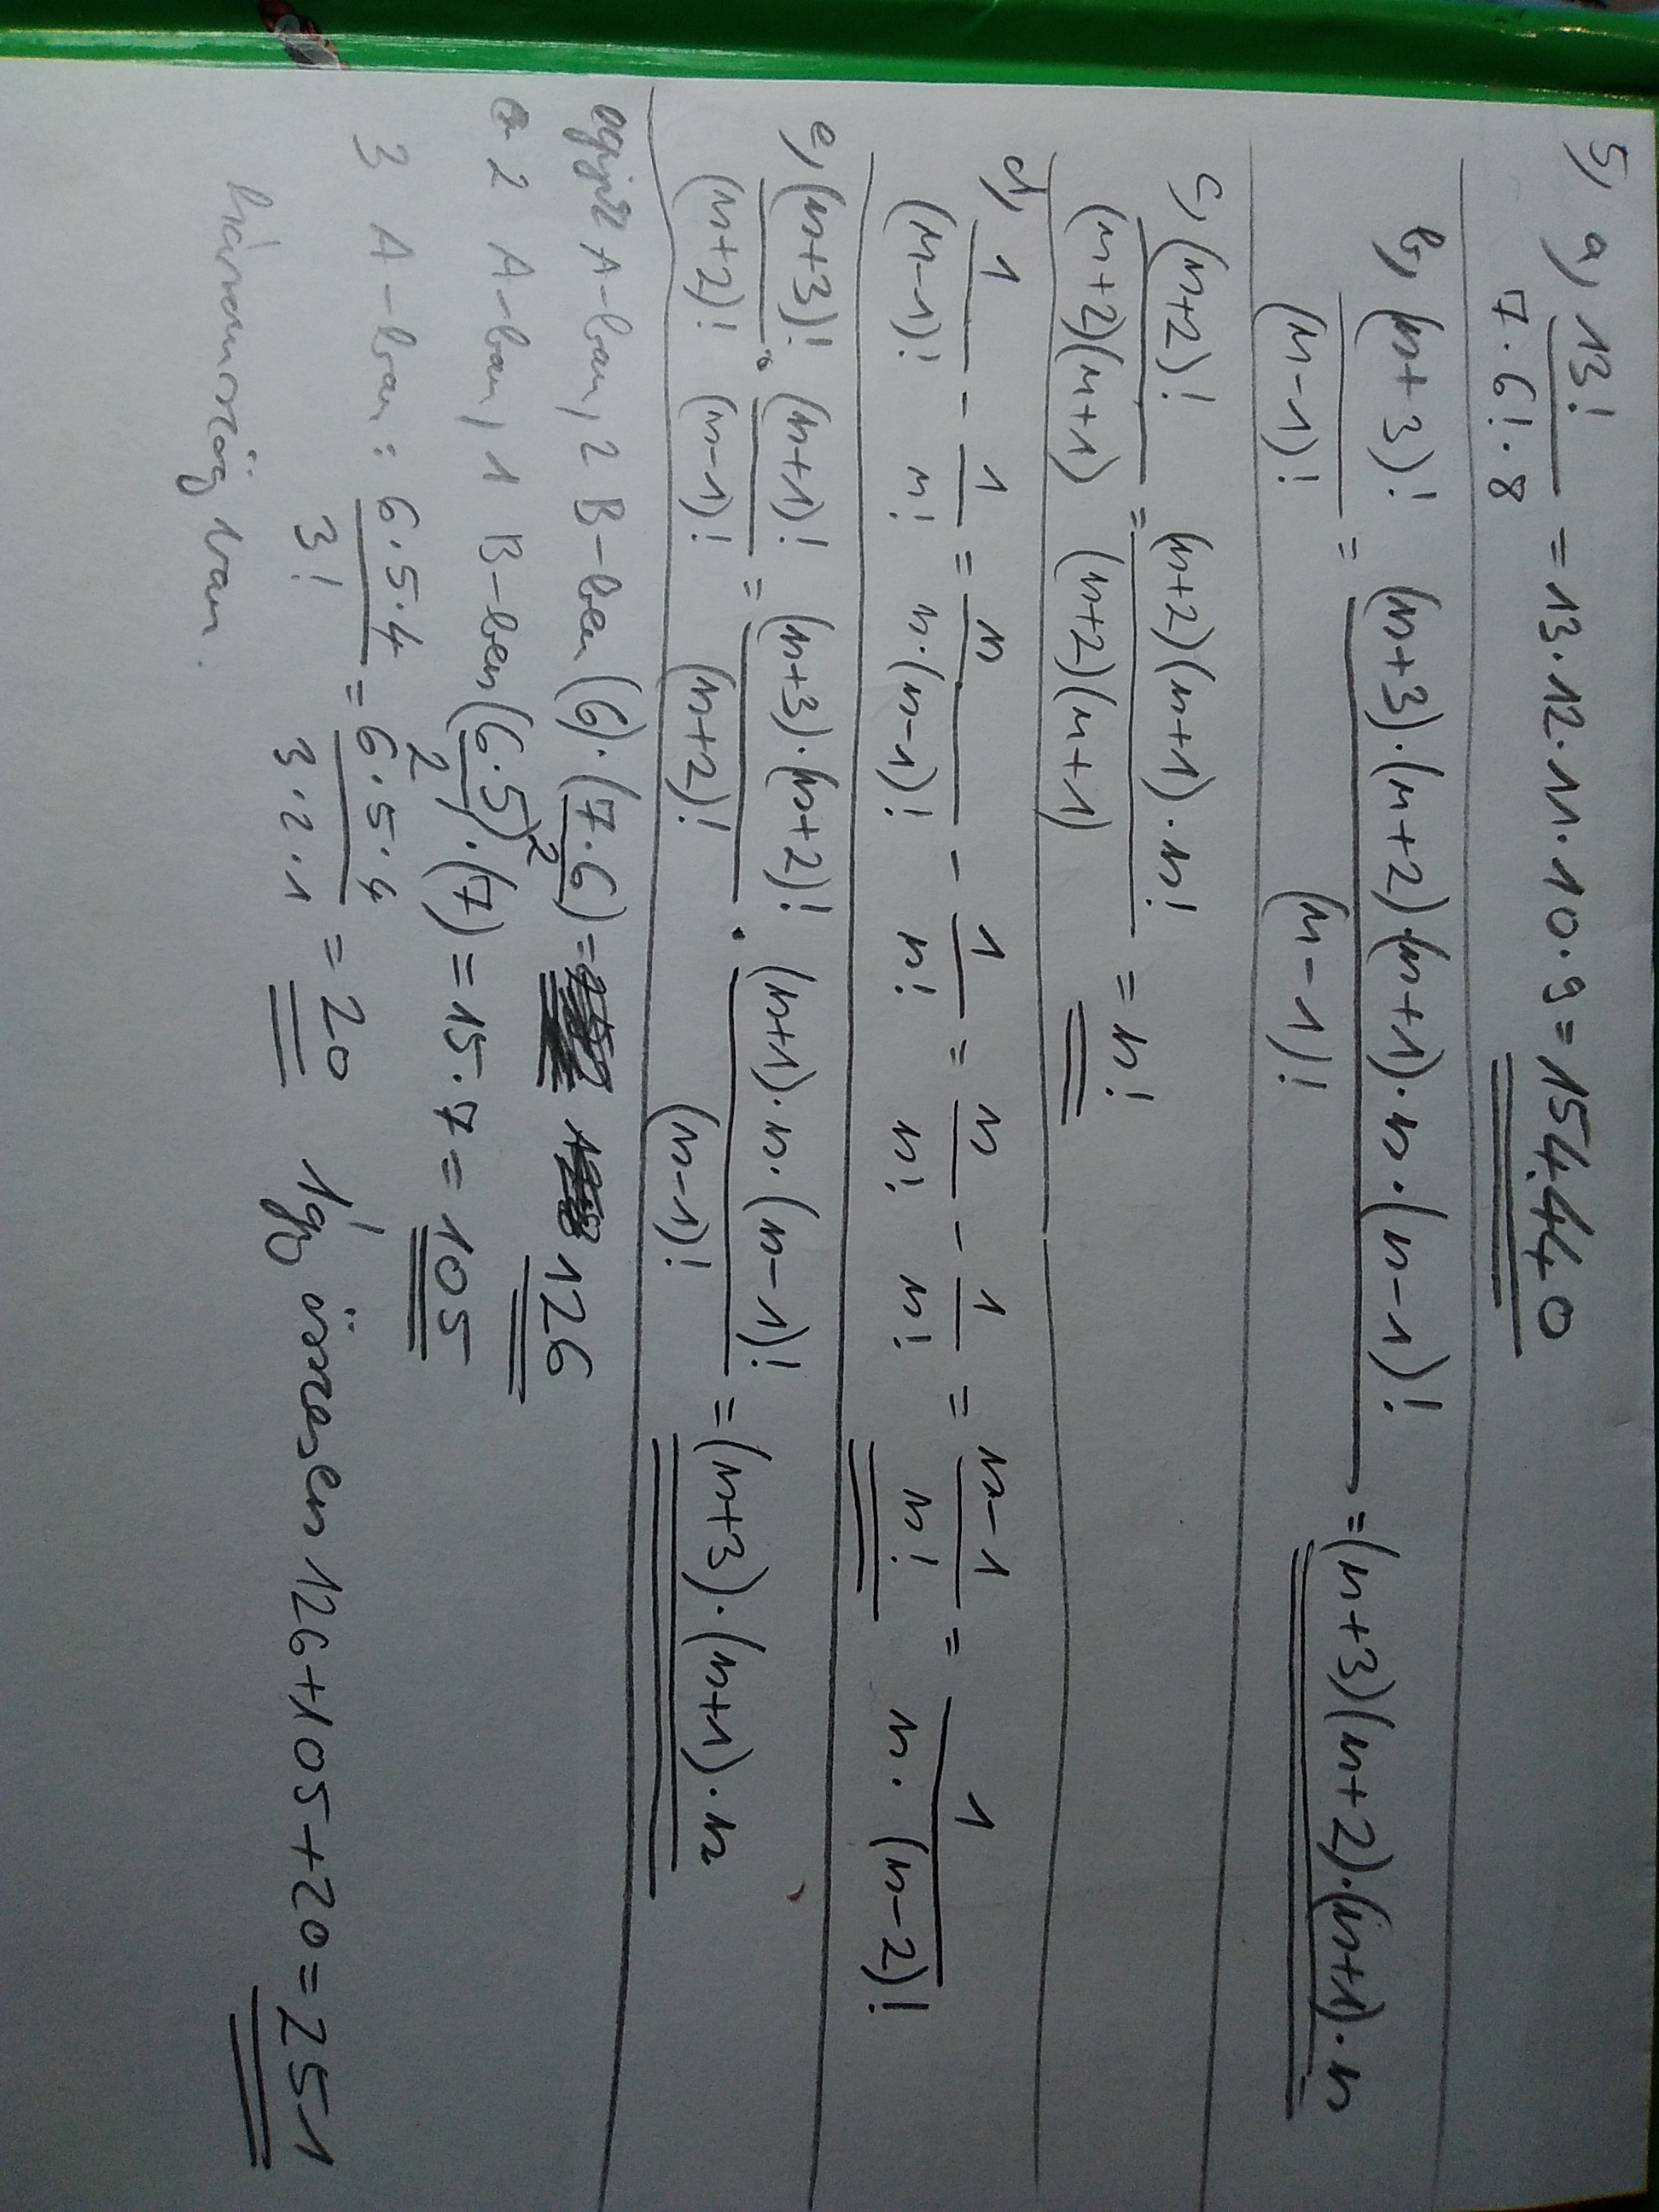 5, a, 13! / 7·6!·8 = 13·12·11·10·9 = 154440
b, (n+3)! / (n-1)! = (n+3)·(n+2)·(n+1)·n·(n-1)! / (n-1)! = (n+3)(n+2)·(n+1)·n
c, (n+2)! / (n+2)(n+1) = (n+2)(n+1)·n! / (n+2)(n+1) = n!
d, 1 / (n-1)! - 1 / n! = n / n·(n-1)! - 1 / n! = n / n! - 1 / n! = n-1 / n! = 1 / n·(n-2)!
e, (n+3)! / (n+2)! · (n+1)! / (n-1)! = (n+3)·(n+2)! / (n+2)! · (n+1)·n·(n-1)! / (n-1)! = (n+3)·(n+1)·n
A-ban, 2 B-ben (6)·(7·6 / 2) = 126
2 A-ban, 1 B-ben (6·5 / 2)·(7) = 15·7 = 105
3 A-ban: 6·5·4 / 3! = 6·5·4 / 3·2·1 = 20 Így összesen 126+105+20=251
háromszög van.